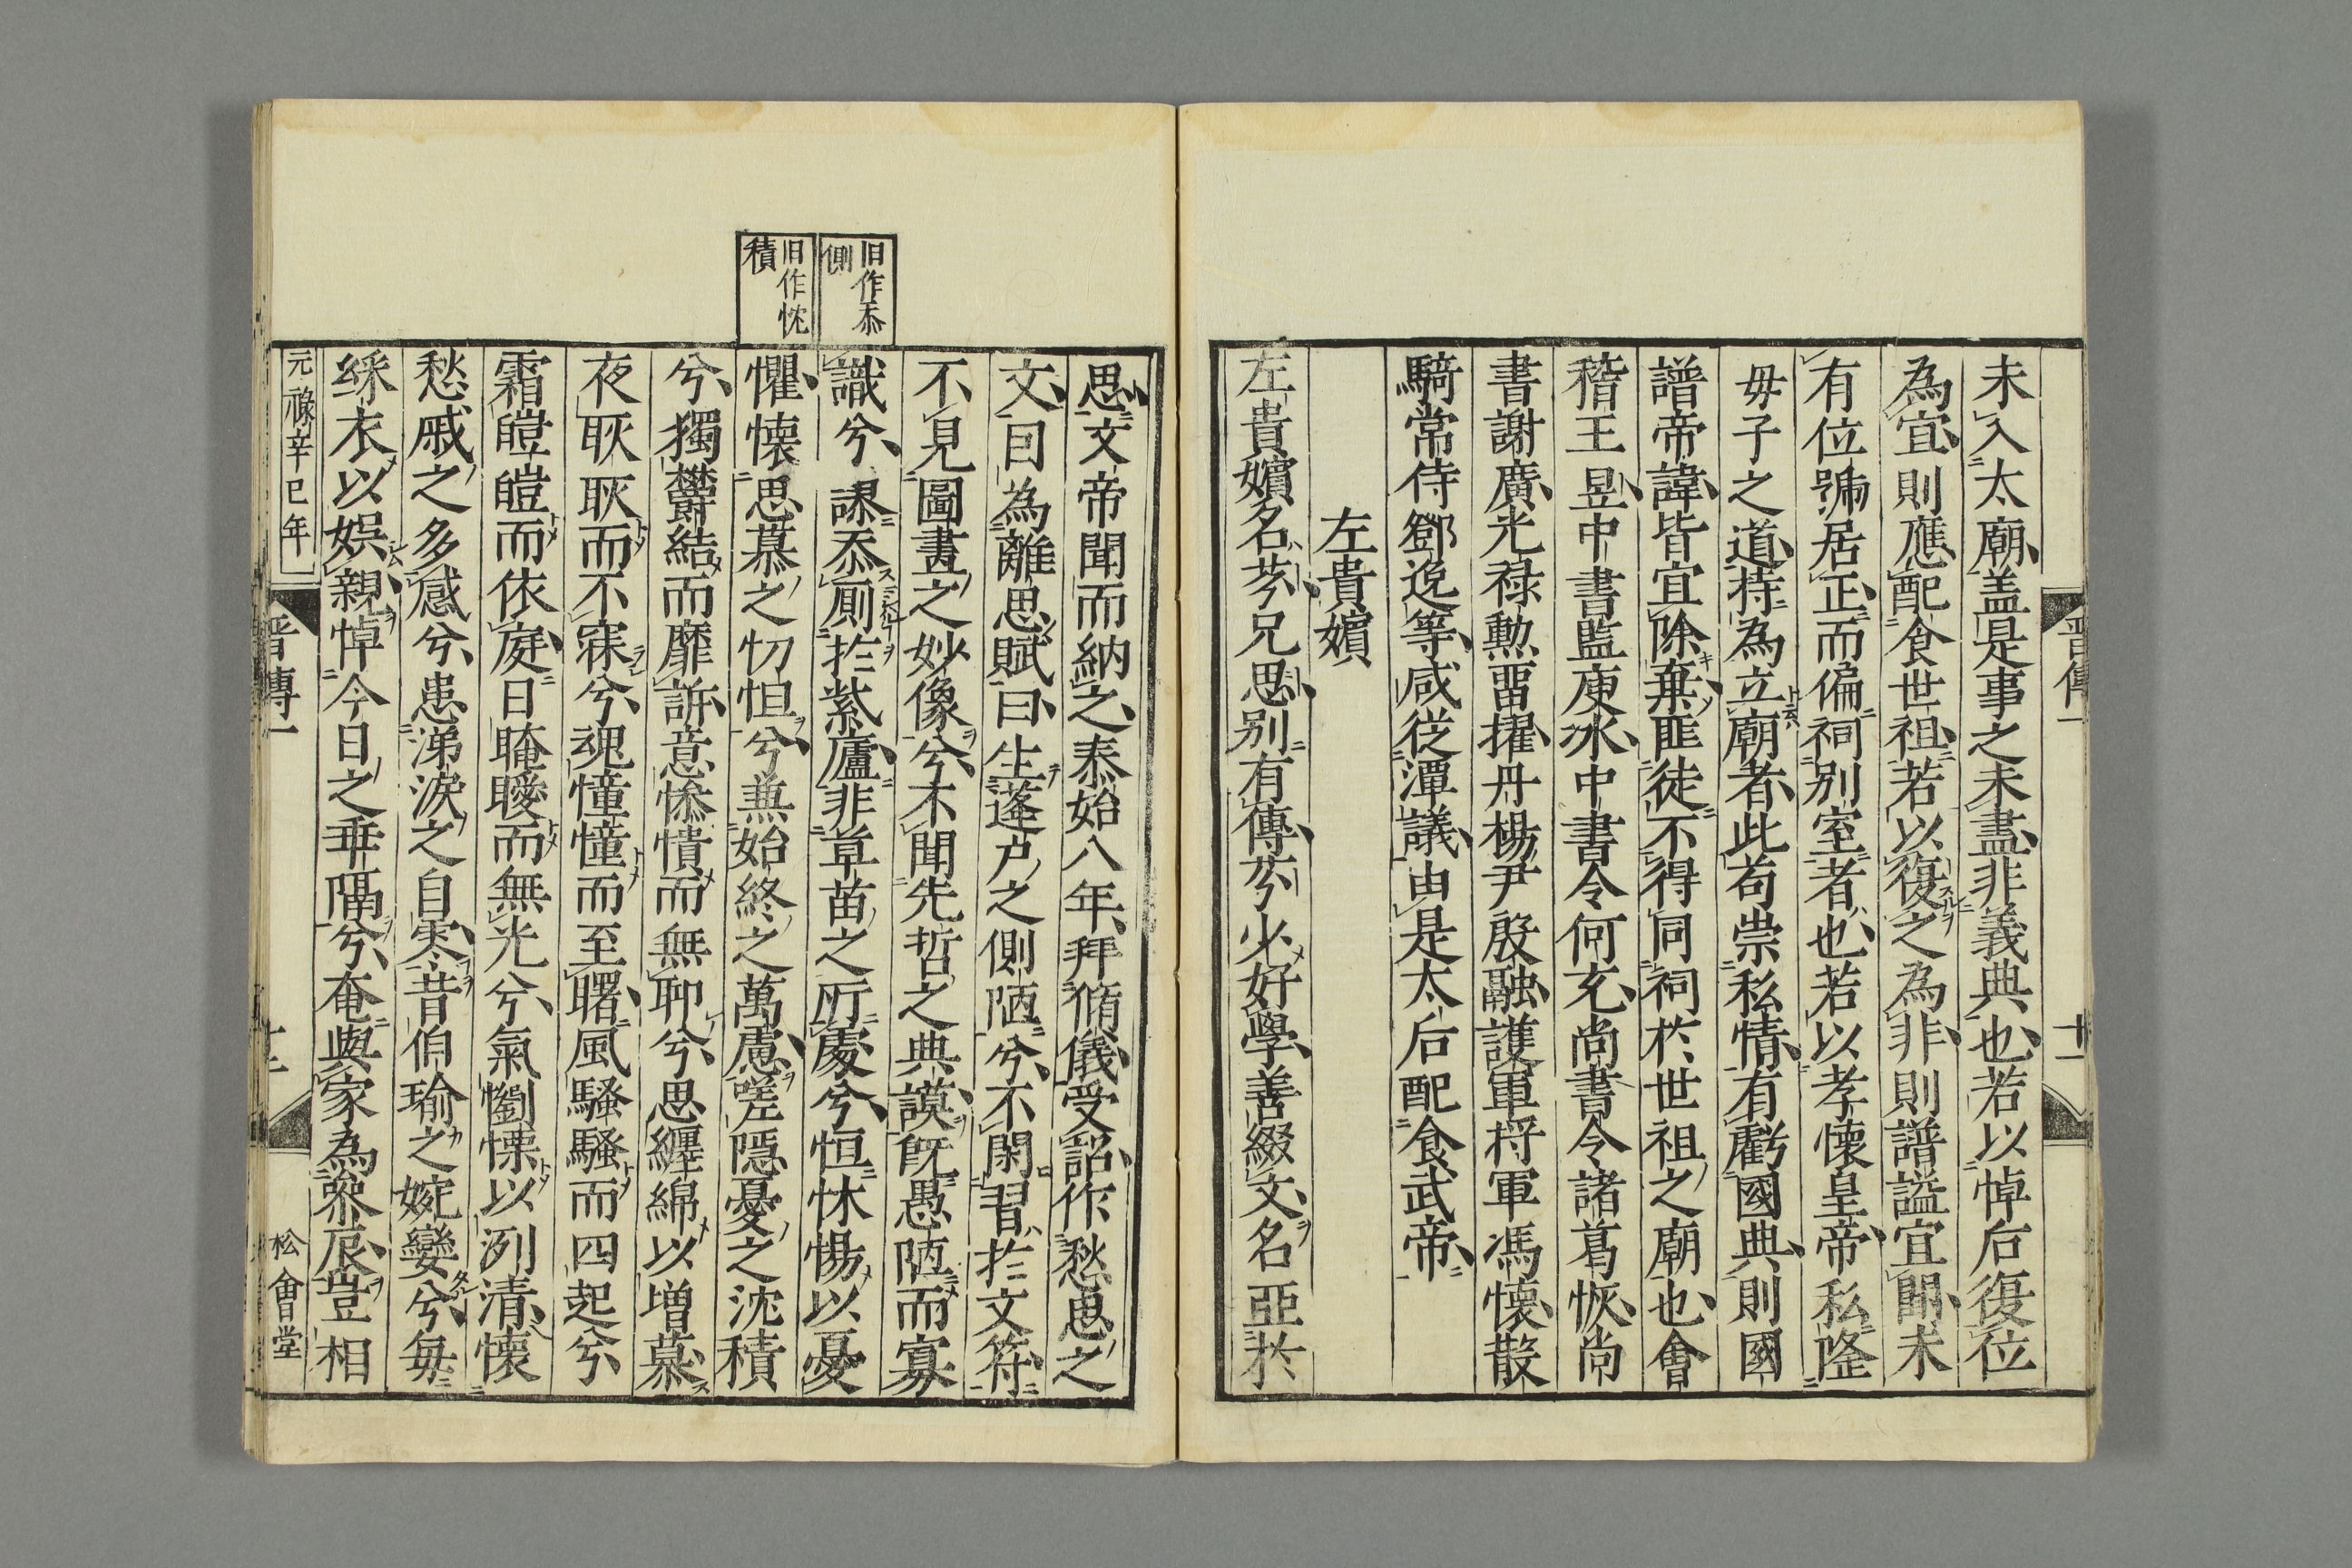 未入太廟蓋是事之未盡非義典也若以悼后復位
為宜則應配食世祖若以復之為非則譜謚宜闕未
有位號居正而偏祠別室者也若以孝懷皇帝私隆
毋子之道特為立廟者此苟崇私情有虧國典則國
譜帝諱皆宜除棄匪徒不得同祠於世祖之廟也會
稽王昱中書監庾氷中書令何充尚書令諸葛恢尚
書謝廣光禄勲畱擢丹楊尹殷融護軍将軍馮懷散
騎常侍鄧逸等咸從潭議由是太后配食武帝
左貴嬪
左貴嬪名芬兄思别有傳芬少好學善綴文名亞於
思文帝聞而納之泰始八年拜脩儀受詔作愁思之
文因為離思賦曰生蓬户之側陋兮不閑習扵文符
不見圖畫之妙像兮不聞先哲之典謨旣愚陋而寡
識兮謬忝厠扵紫廬非草苗之所處兮恒怵惕以憂
懼懷思慕之忉怛兮兼始終之萬慮嗟隱憂之沈積
兮獨鬱結而靡訴意慘憒而無聊兮思纏綿以增慕
夜耿耿而不寐兮魂憧憧而至曙風騷騷而四起兮
霜皚皚而依庭日晻曖而無光兮氣懰慄以洌清懷
愁戚之多感兮患涕淚之自零昔伯瑜之婉孌兮毎
綵衣以娯親悼今日之乖隔兮奄與家為參辰豈相
旧作忝
側
旧作忱
積
晋傳一
十一
元祿辛巳年
晋傳一
十二
松會堂